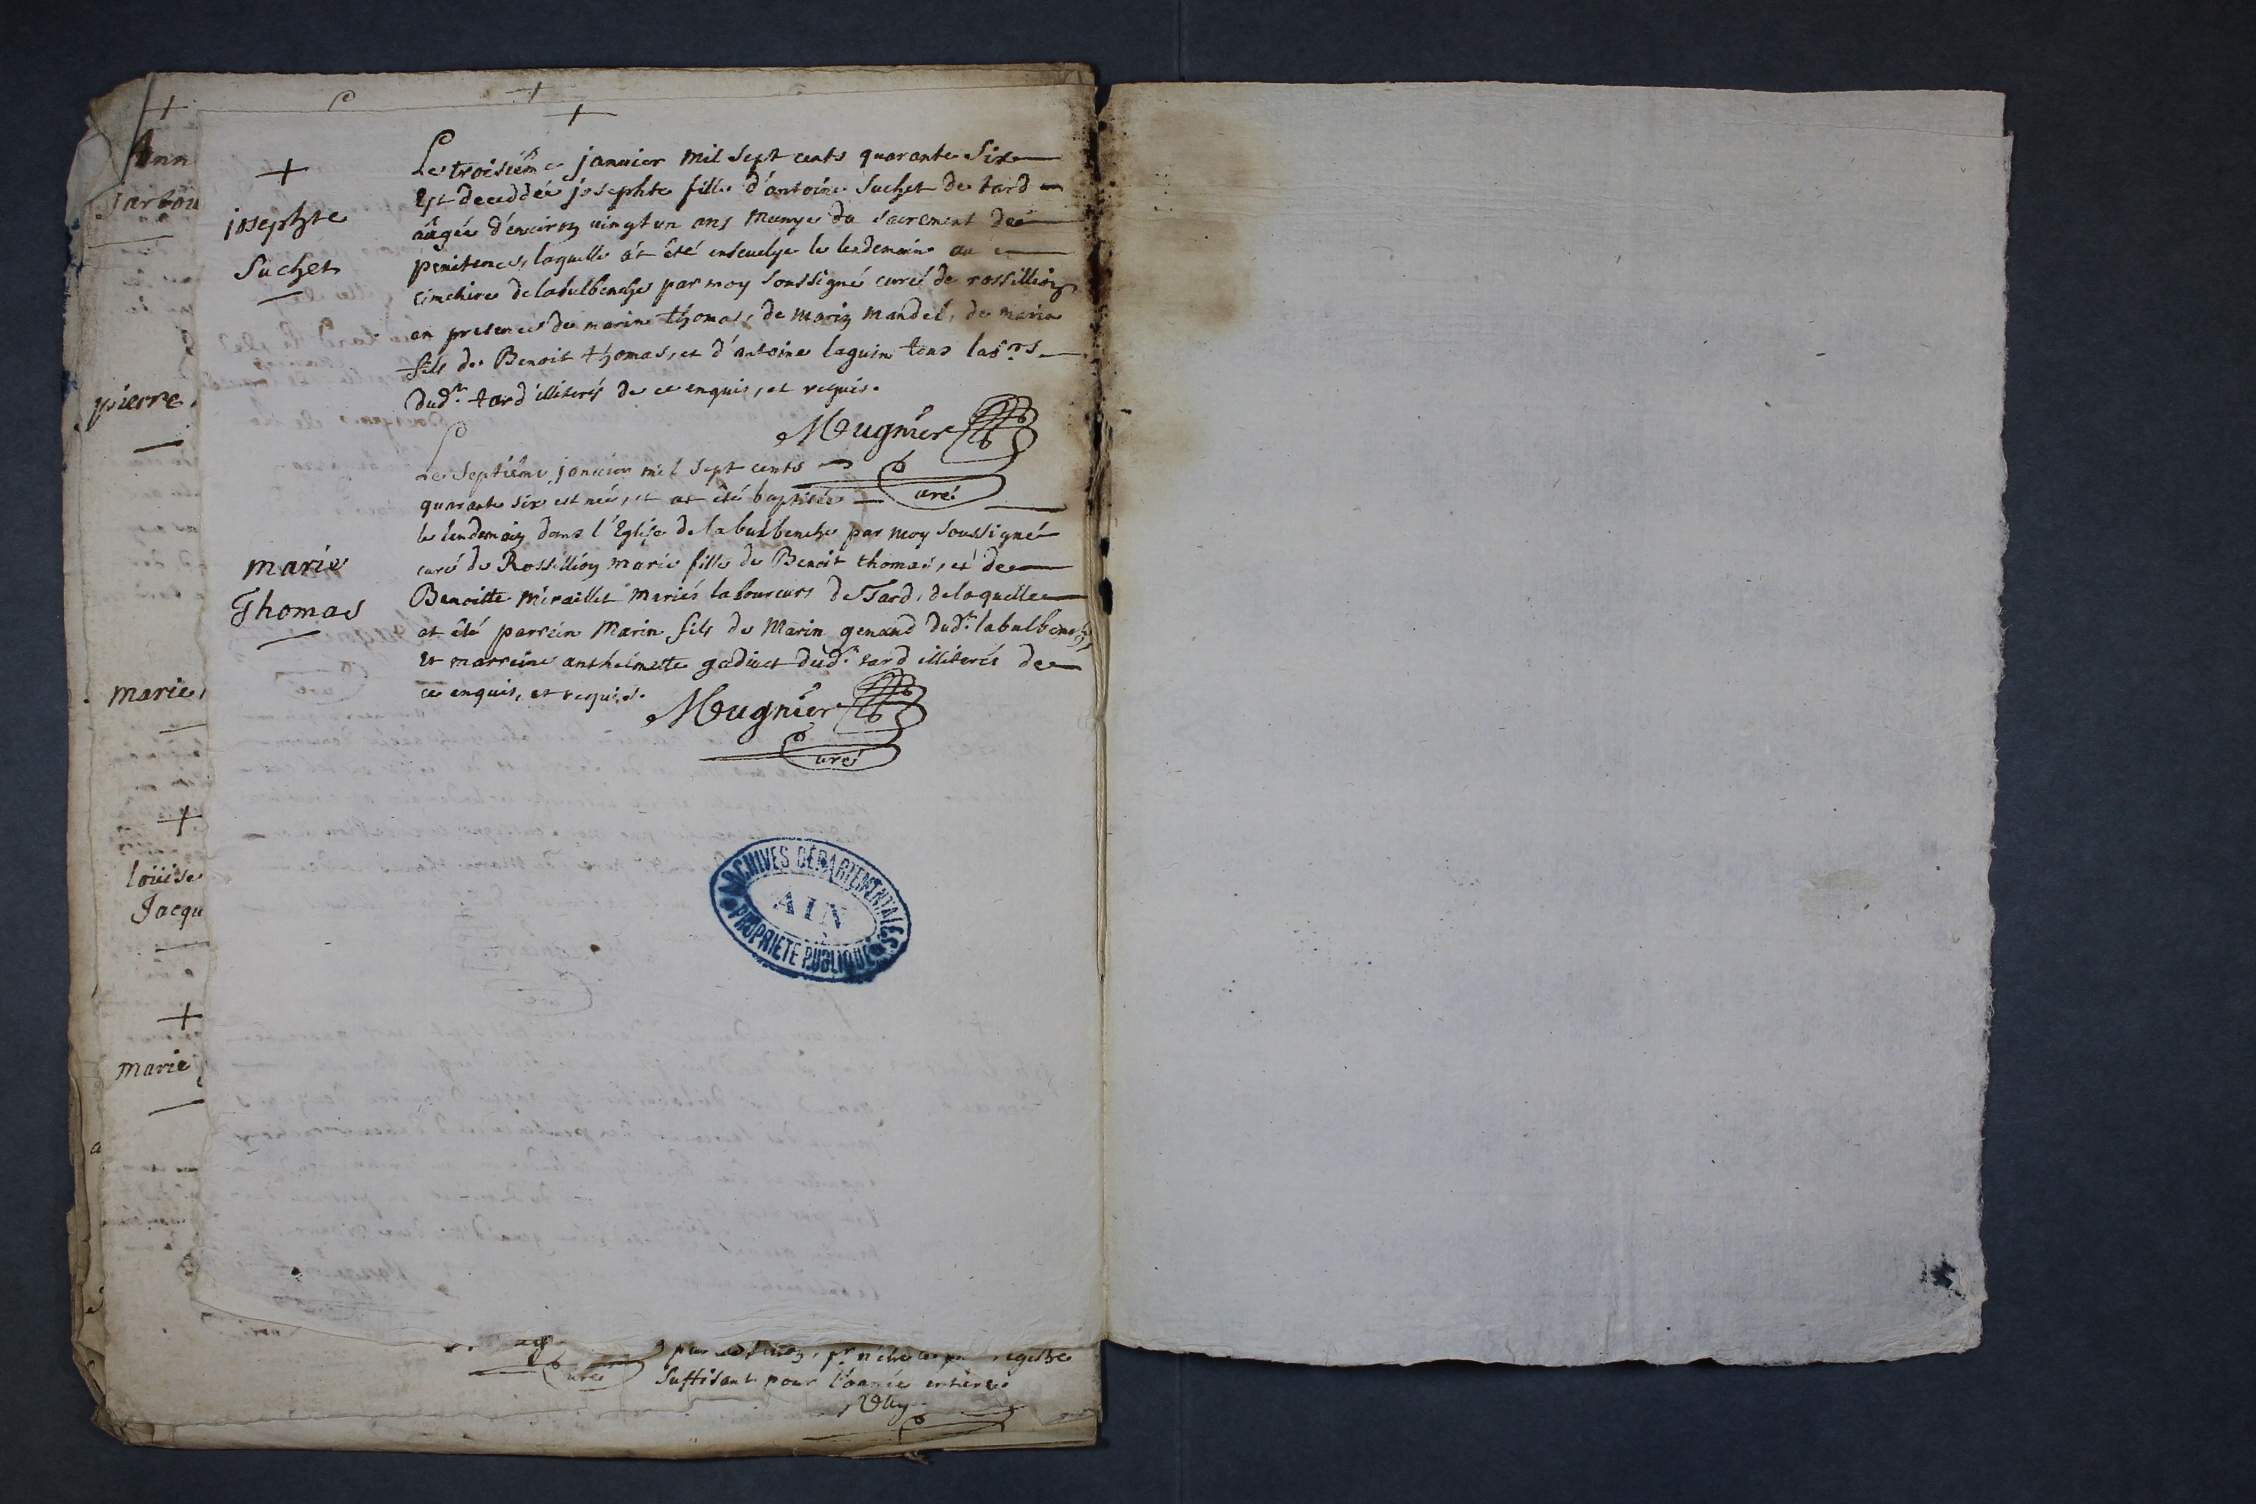 +
Ann
Jarbou
pierre
marie
+
louise
Jacqu
+
marie
+
josephte
Suchet
Le troisiéme janvier mil sept cents quarante six
Est deceddée josephte fille d'antoine Suchet de tard
âagée d'environ vingt un ans Munye du sacrement de
penitence, laquelle at été ensevelye le lendemain au
cimetiere de labulbenche par moy soussigné curé de rossillion
en presence de marin thomas, de marin mandet, de marin
fils de Benoit thomas, et d'antoine laguin tous lab.rs
dud.t tard illiterés de ce enquis, et requis.
Meugnier
Curé
marie
Thomas
Le septiéme janvier mil sept cents
quarante six est née, et at été baptisée
le lendemain dans l'Eglise de labulbenche par moy soussigné
curé de Rossillion marie fille de Benoit thomas, et de
Benoitte méraillet mariés laboureurs de Tard, de laquelle
at été parrein Marin fils de Marin genand dud.t labulbenche
et marreine anthelmette gadiuet dud.t tard illiterés de
ce enquis, et requis.
Meugnier
Curé
ARCHIVES DÉPARTEMENTALES
AIN
PROPRIETE PUBLIQUE
Curé
registre
suffisant pour l'année entiere